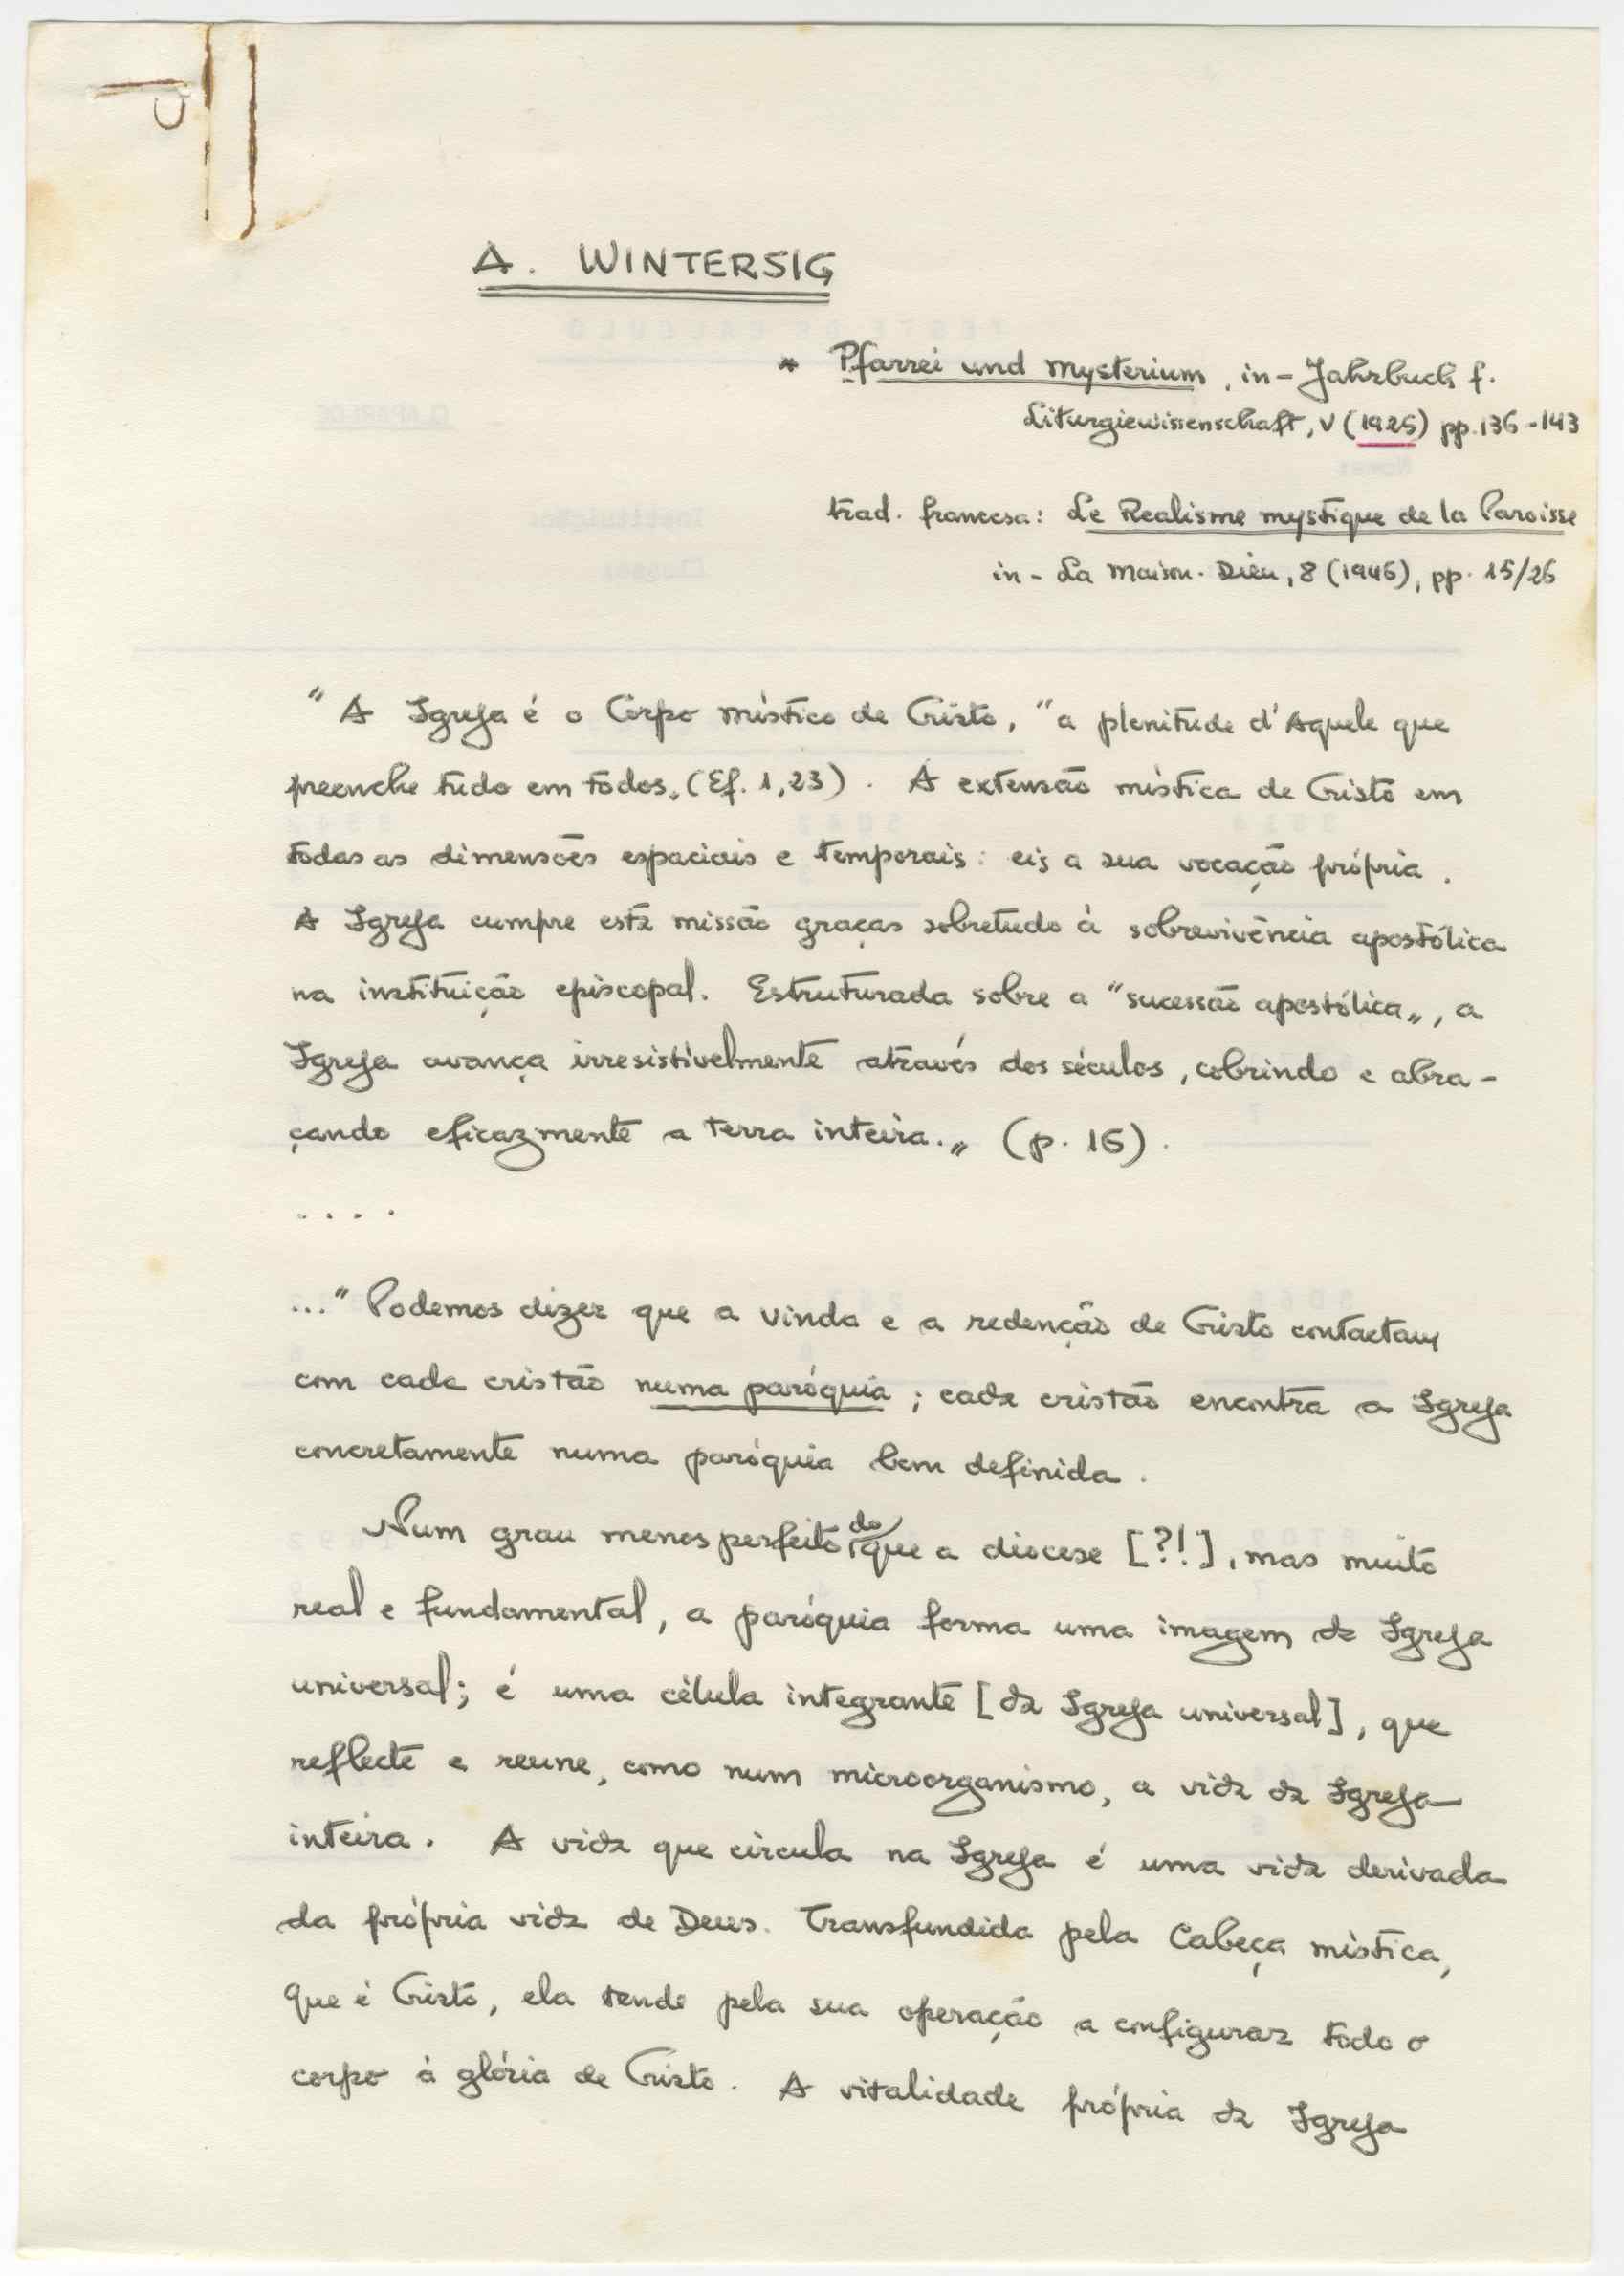 A. WINTERSIG
* Pfarrei und Mysterium, in - Jahrbuch f.
Liturgiewissenschaft, V (1925) pp. 136-143
trad. francesa: Le Realisme mystique de la Paroisse
in - La Maison-Dieu, 8 (1946), pp. 15/26
"A Igreja é o Corpo místico de Cristo, "a plenitude d'Aquele que
preenche tudo em todos„ (Ef. 1,23). A extensão mística de Cristo em
todas as dimensões espaciais e temporais: eis a sua vocação própria.
A Igreja cumpre esta missão graças sobretudo à sobrevivência apostólica
na instituição episcopal. Estruturada sobre a "sucessão apostólica„, a
Igreja avança irresistìvelmente através dos séculos, cobrindo e abra-
çando eficazmente a terra inteira.„ (p. 16).
....
..." Podemos dizer que a vinda e a redenção de Cristo contactam
com cada cristão numa paróquia; cada cristão encontra a Igreja
concretamente numa paróquia bem definida.
Num grau menos perfeito do que a diocese [?!], mas muito
real e fundamental, a paróquia forma uma imagem da Igreja
universal; é uma célula integrante [da Igreja universal], que
reflecte e reune, como num microorganismo, a vida da Igreja
inteira. A vida que circula na Igreja é uma vida derivada
da própria vida de Deus. Transfundida pela Cabeça mística,
que é Cristo, ela tende pela sua operação a configurar todo o
corpo à glória de Cristo. A vitalidade própria da Igreja